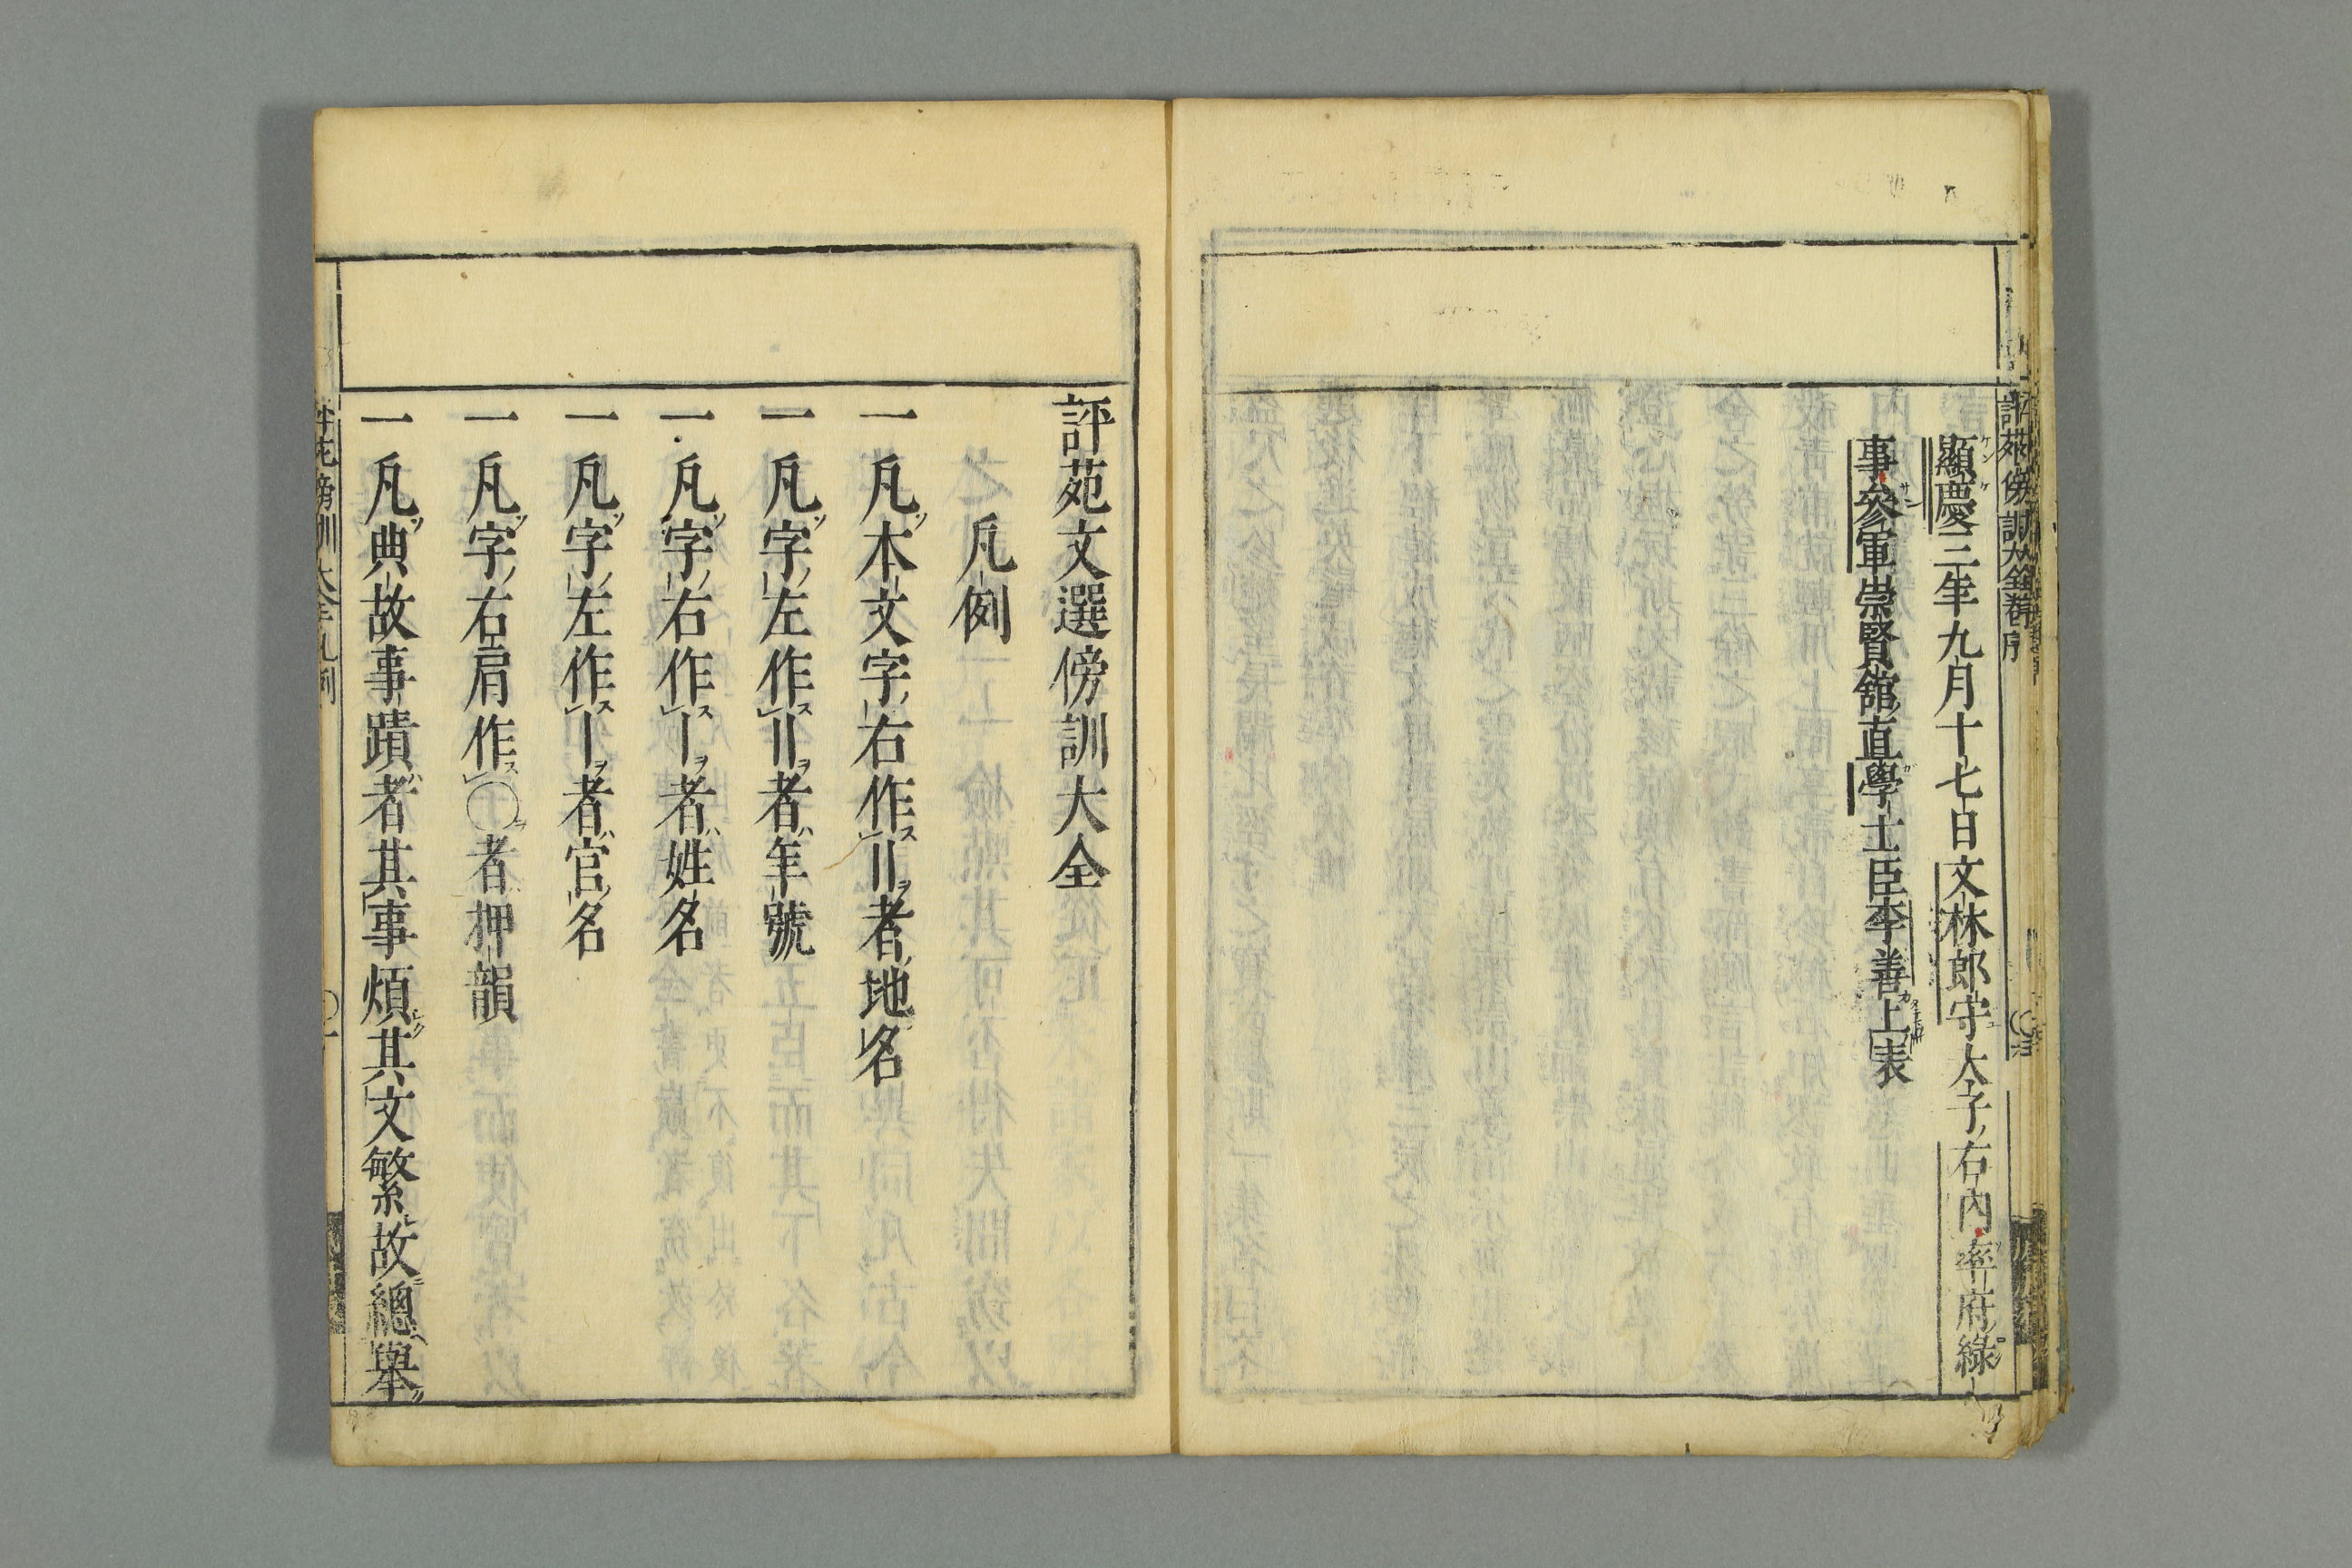 顯慶三年九月十七日文林郎守太子右內率府錄
事參軍崇賢館直學士臣李善上表
評苑文選傍訓大全
凡例
一凡本文字右作〢者地名
一凡字左作〢者年號
一凡字右作〡者姓名
一凡字左作〡者官名
一凡字右肩作〇者押韻
一凡典故事蹟者其事煩其文繁故總舉